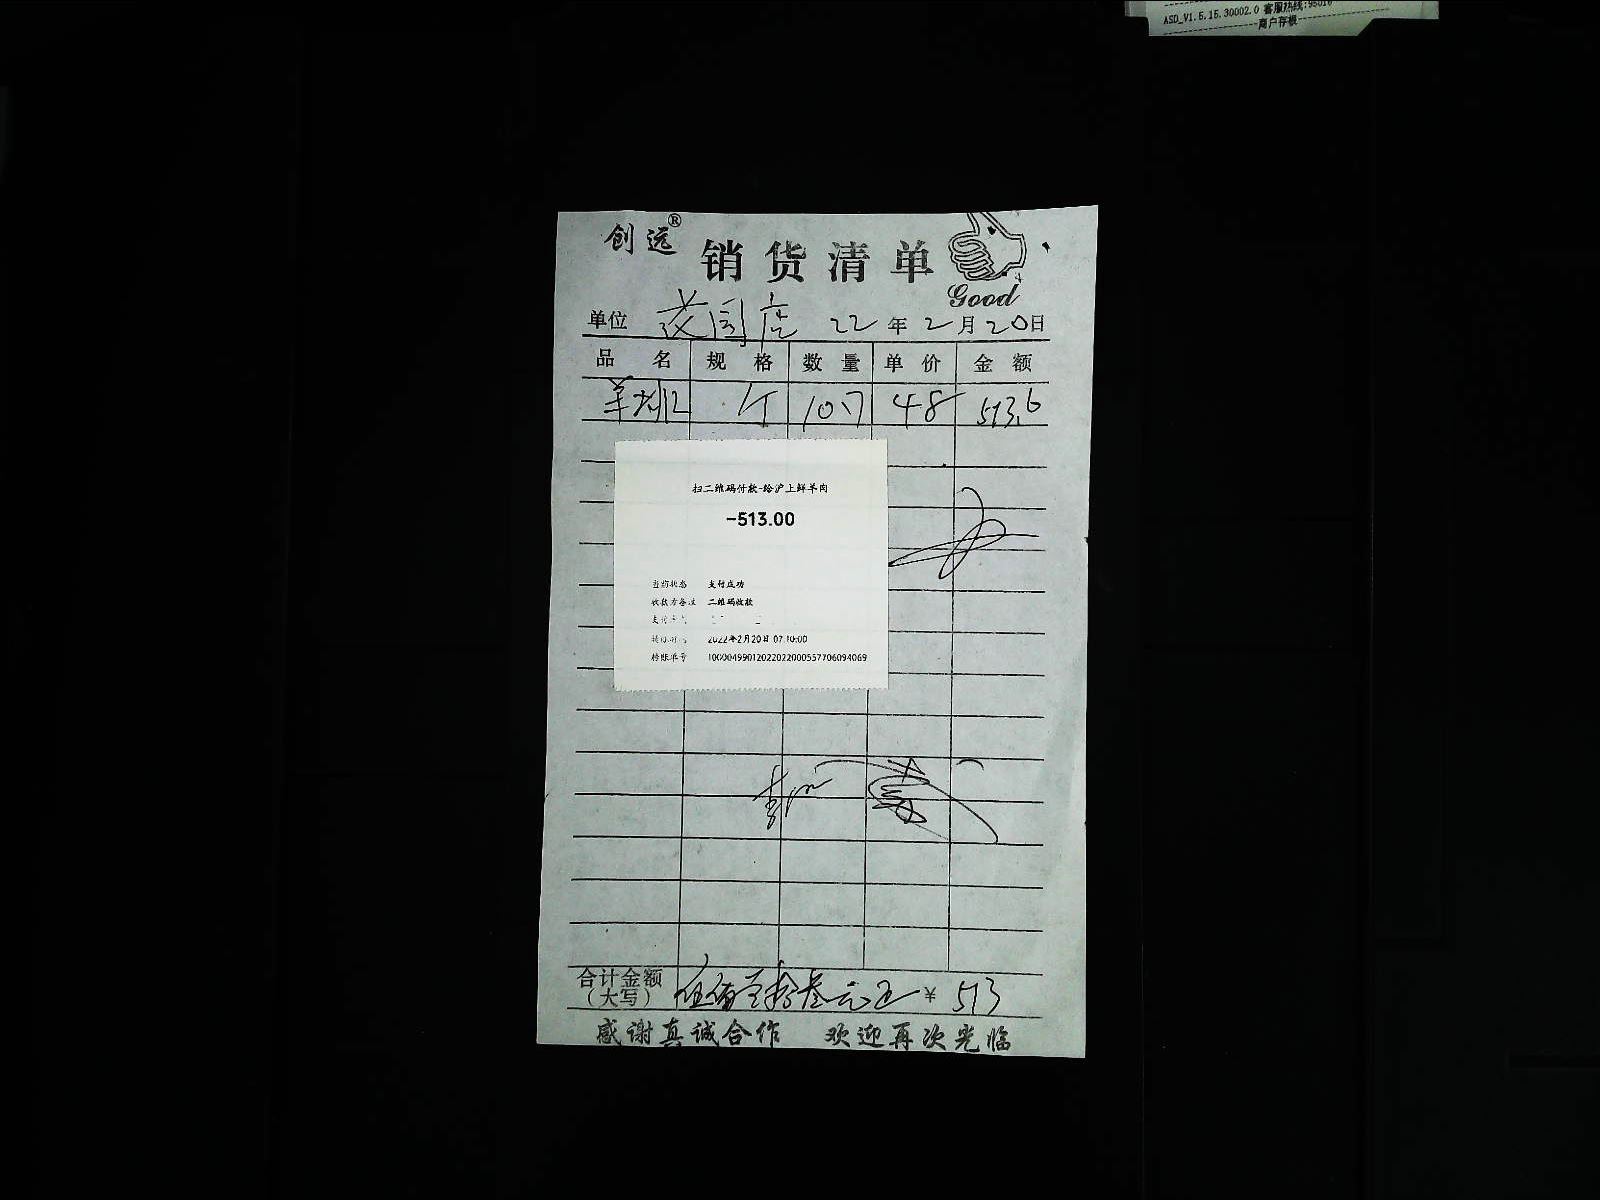 ASD_V1.5.15.30002.0 客服热线:95016
商户存根
创远®
销货清单
Good
单位 花园店 22年2月20日
品名 规格 数量 单价 金额
羊排 斤 10.7 48 513.6
扫二维码付款-给沪上鲜羊肉
-513.00
当前状态 支付成功
收款方备注 二维码收款
支付方式
转账时间 2022年2月20日 07:10:00
转账单号 10000499012022022000557706094069
合计金额
(大写) 伍佰壹拾叁元正 ¥ 513
感谢真诚合作 欢迎再次光临